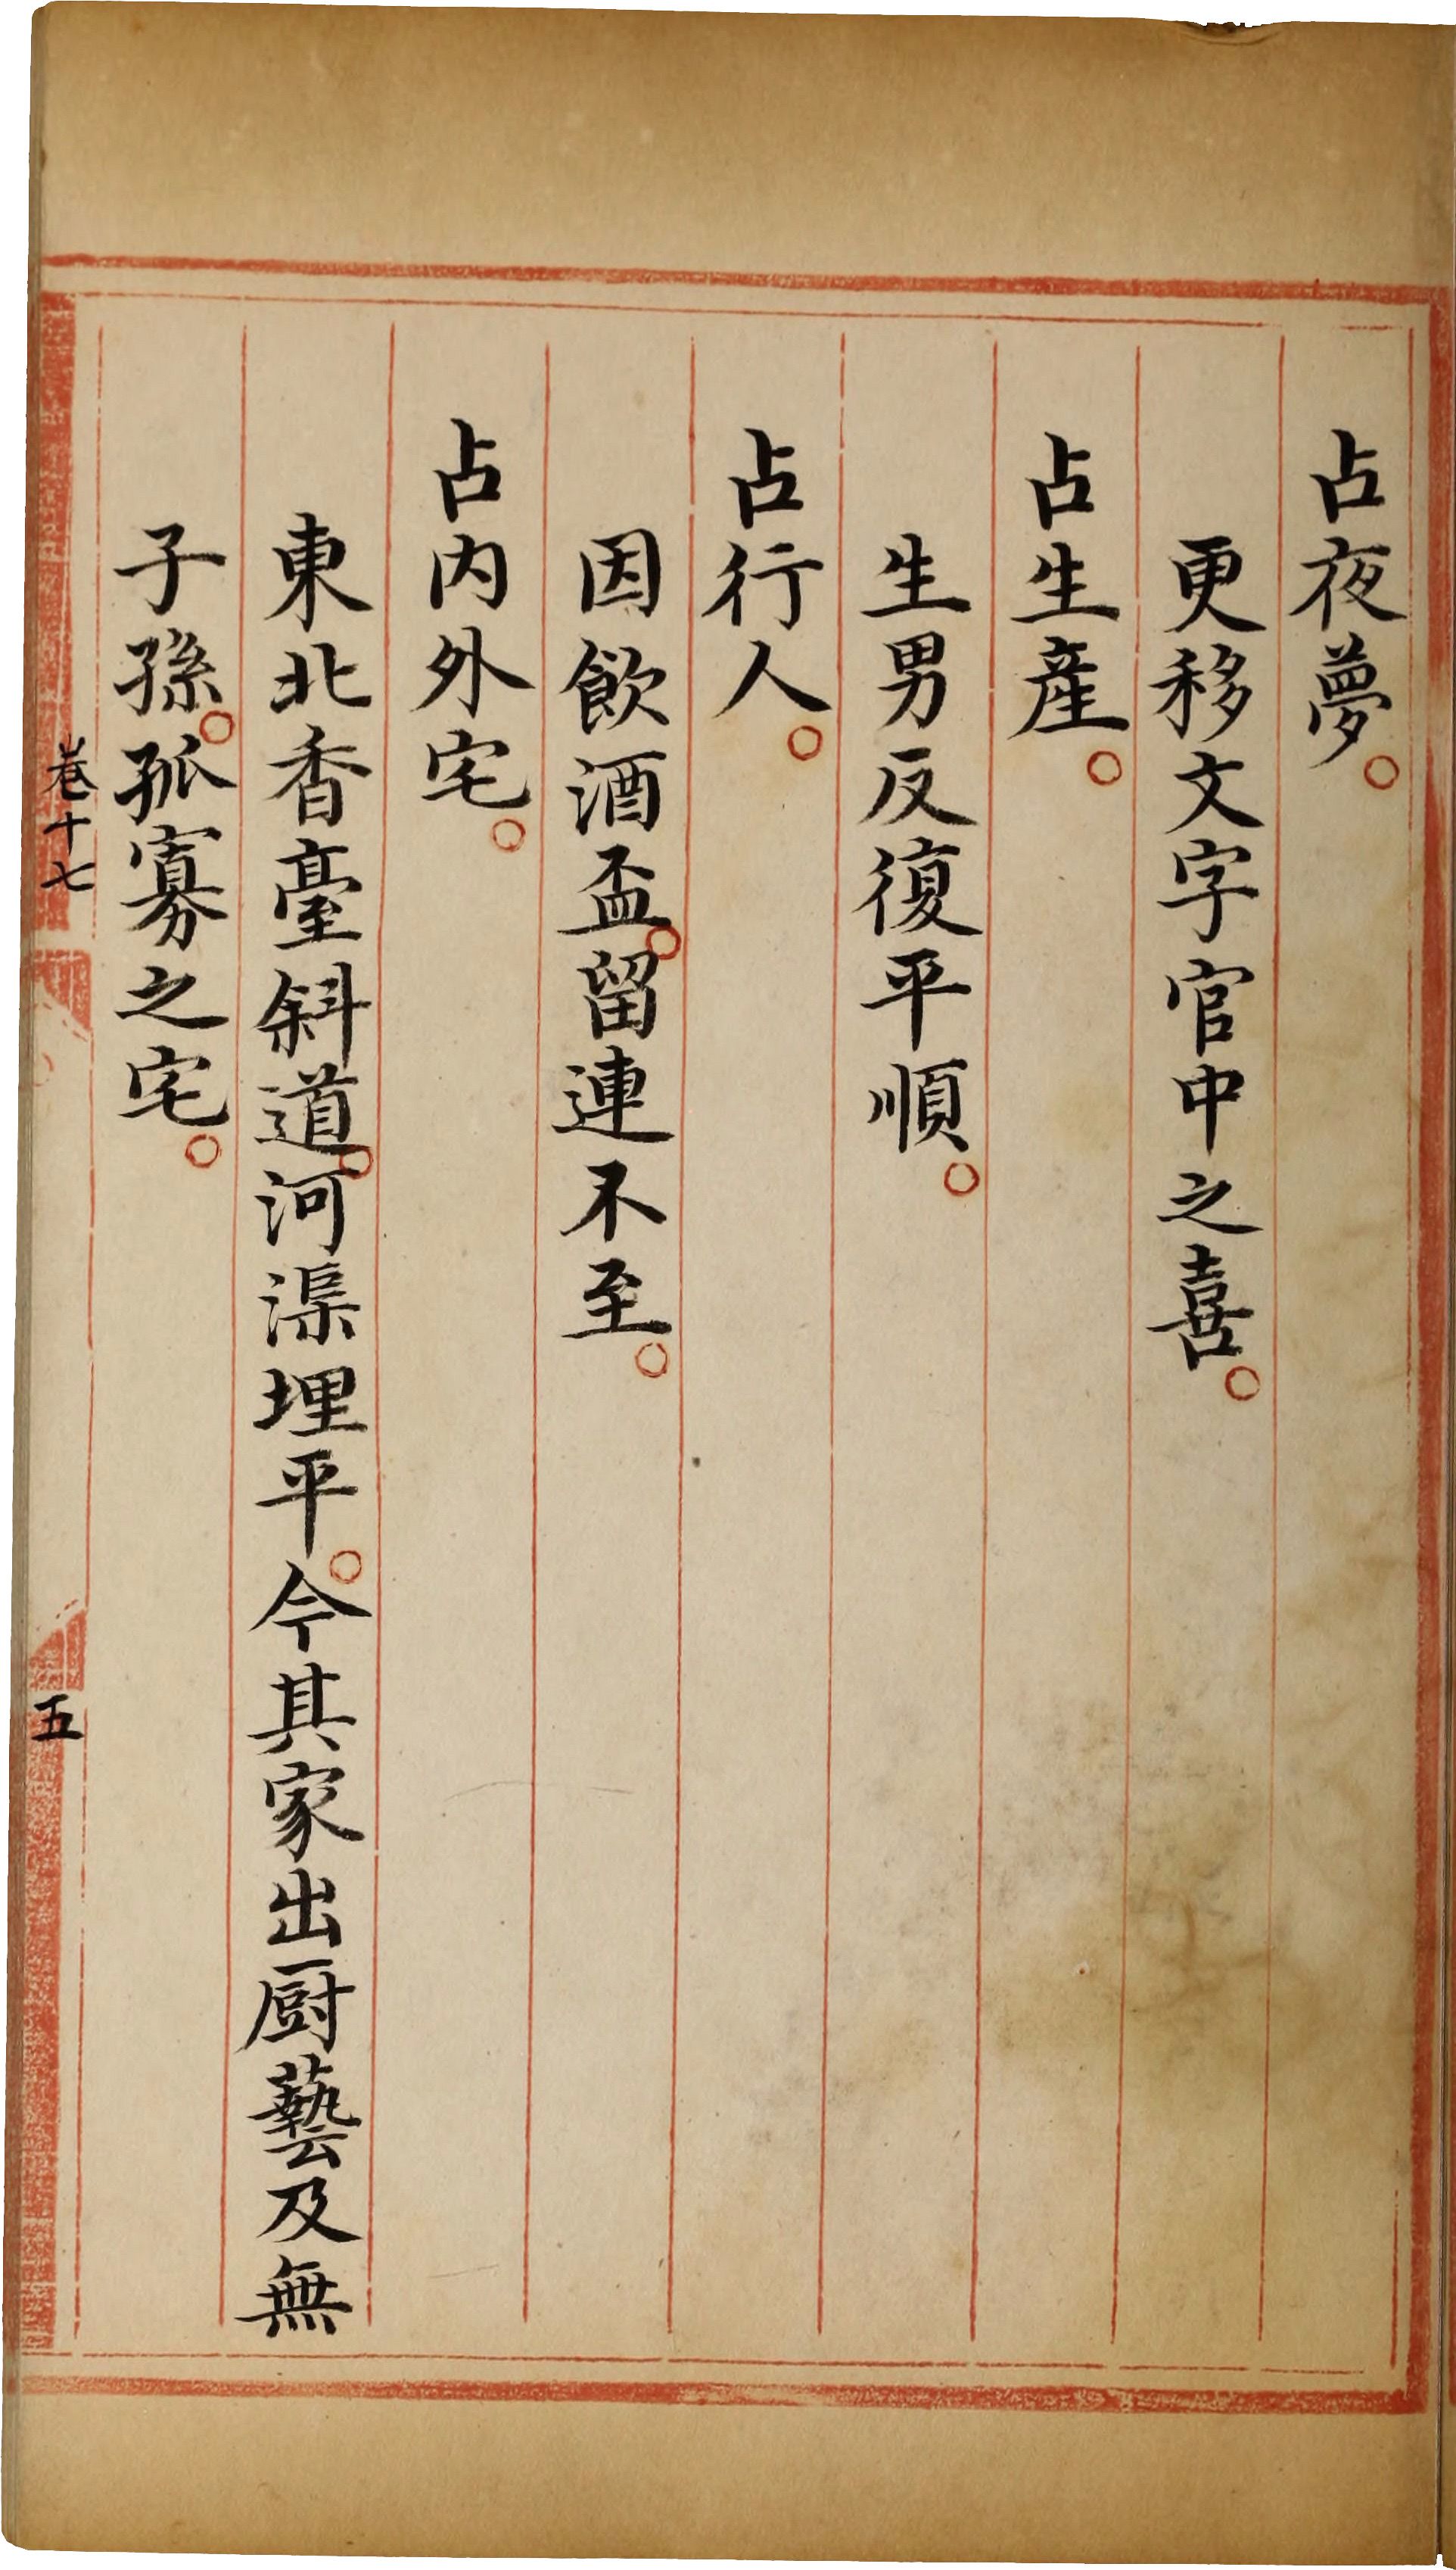 占夜夢。
更移文字官中之喜。
占生産。
生男反復平順。
占行人。
因飲酒盃。留連不至。
占内外宅。
東北香臺斜道。河渠埋平。今其家出厨藝及無
子孫。孤寡之宅。
卷十七
五